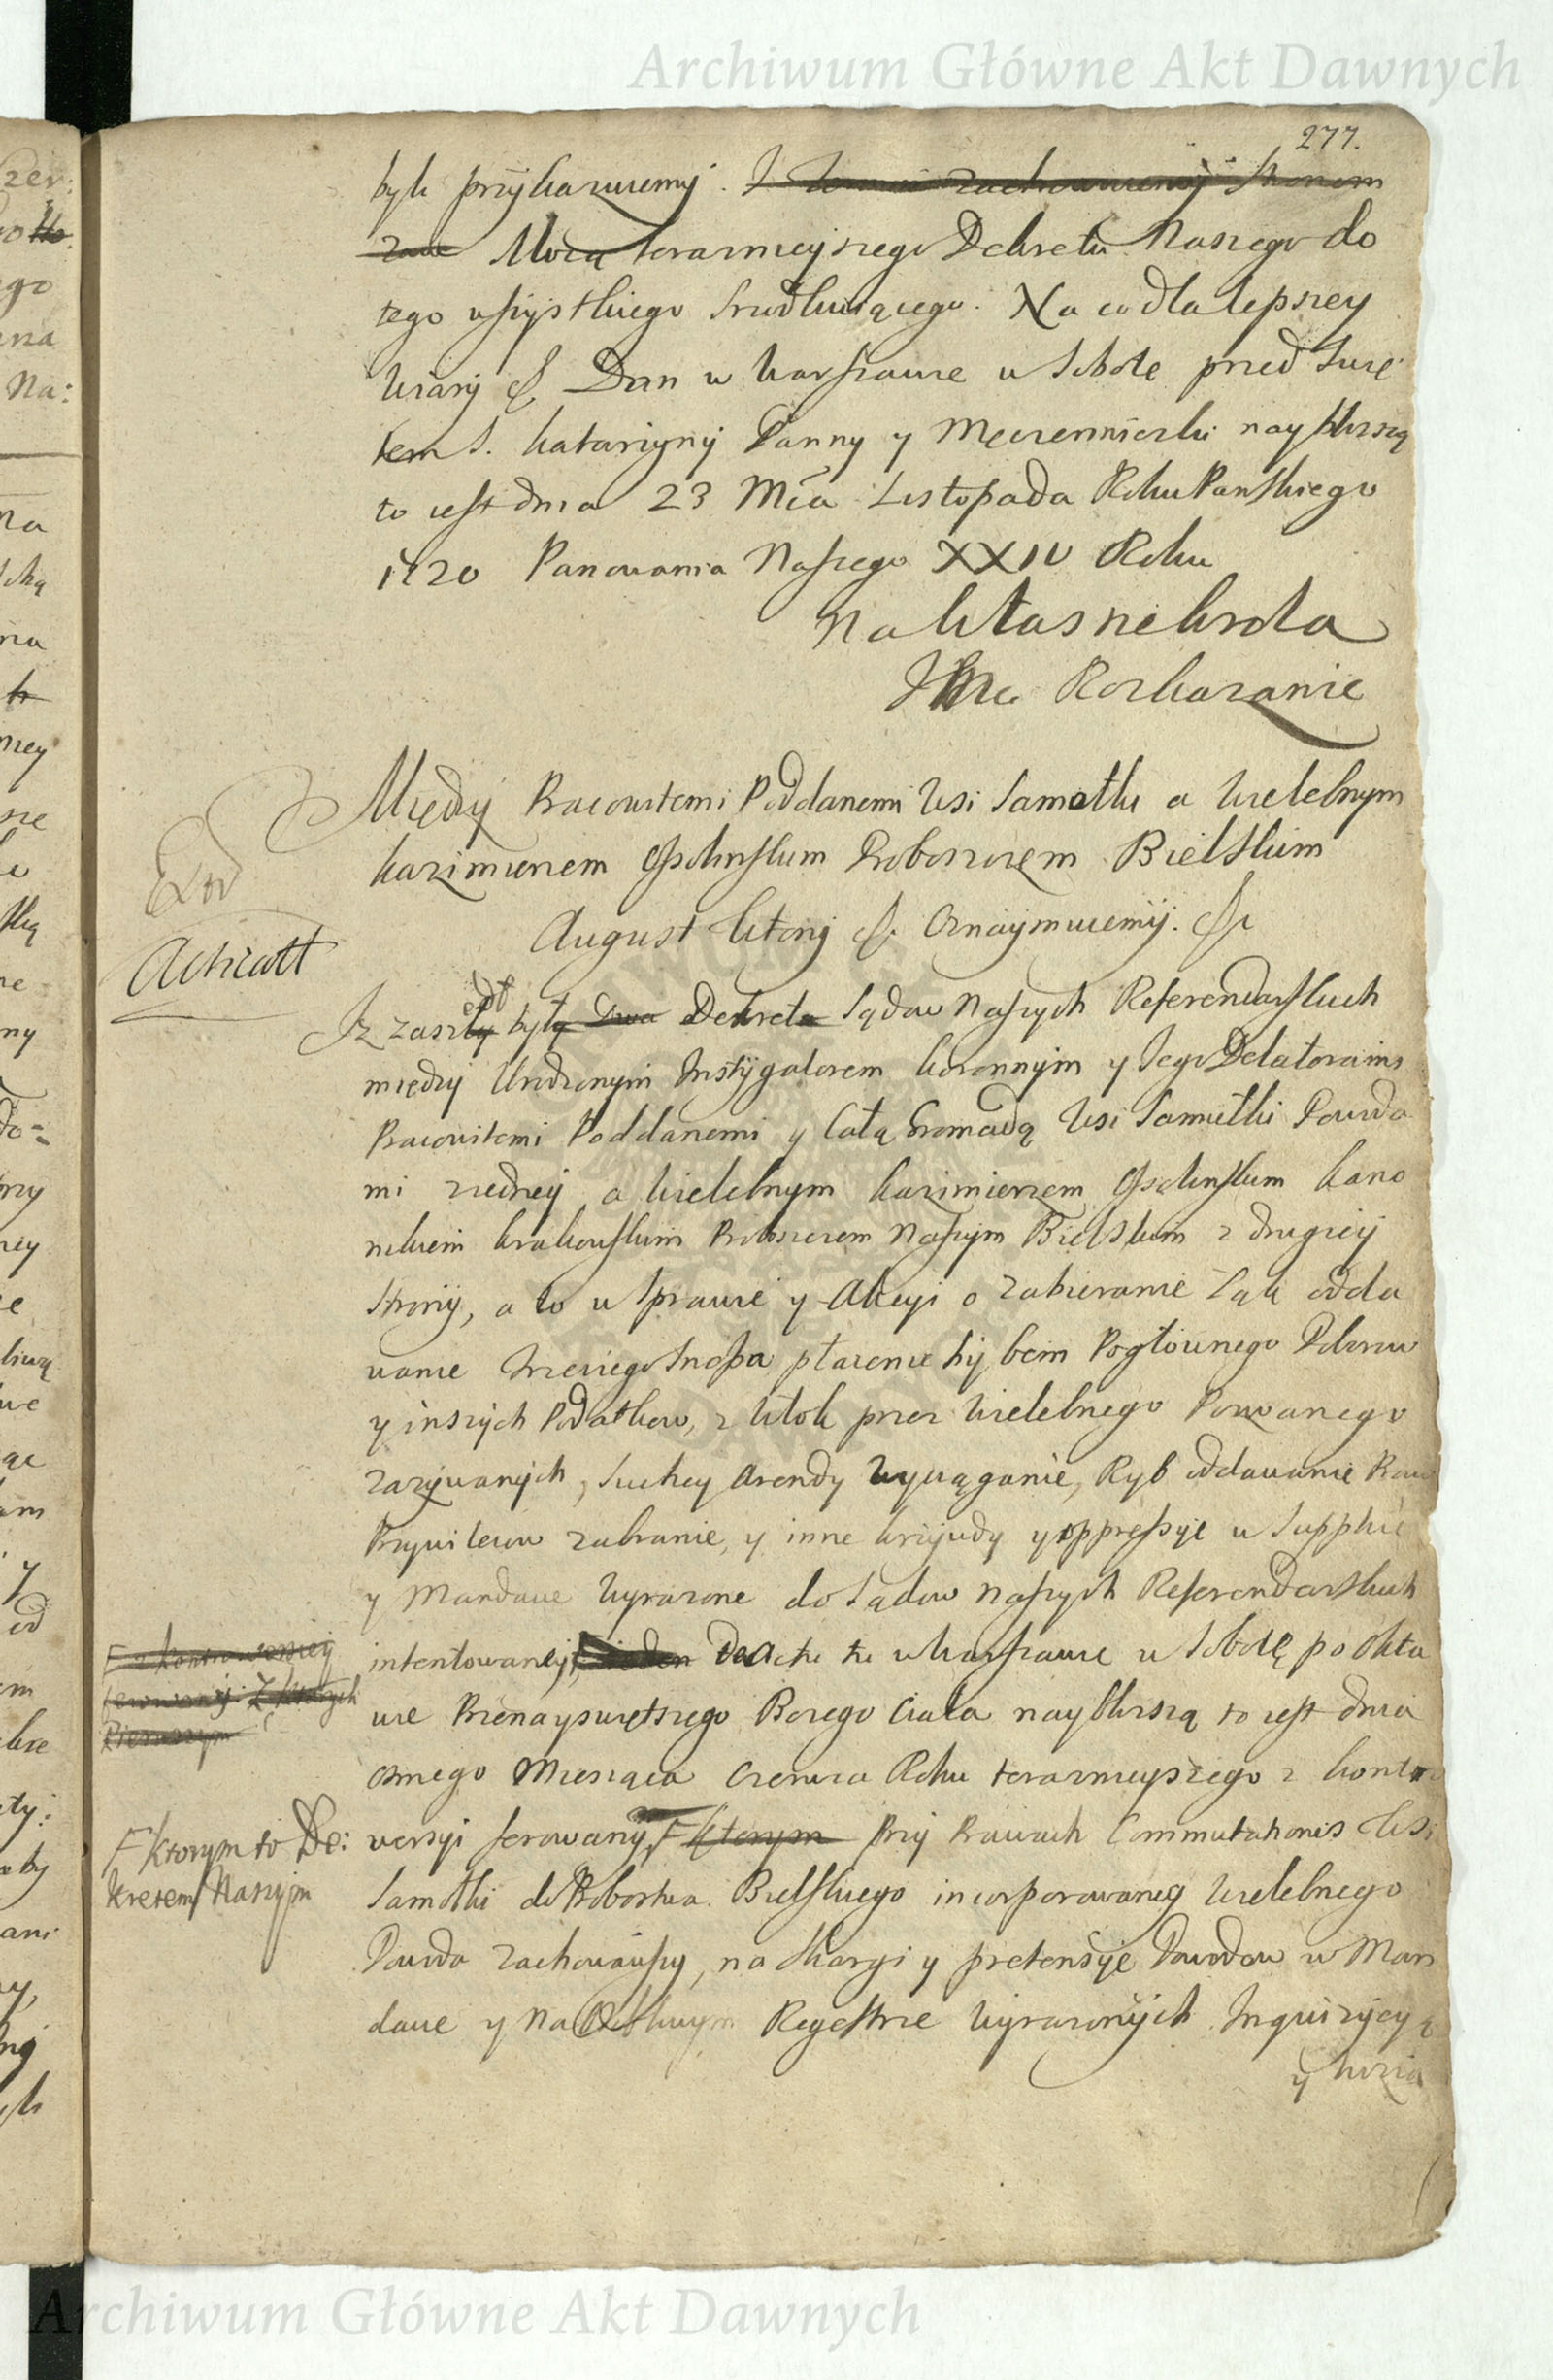 Archiwum Główne Akt Dawnych
277.
byli przykazuiemy. I zachowuiemy Stronom
Mocą teraznieyszego Dekretu Naszego do
tego wszystkiego srzodkuiącego. Na co dla lepszey
Wiary &. Dan w Warszawie w Sobotę przed Swię
tem S. Katarzyny Panny y Męczenniczki naybliszą
to iest dnia 23 Mca Listopada Roku Panskiego
1720 Panowania Naszego XXIV Roku
Na Własne Krola
Jmci Rozkazanie
Między Pracowitemi Poddanemi Wsi Samotki a Wielebnym
Kazimierzem Ossolinskim Proboszczem Bielskim
August Wtory &. Oznaymuiemy. &
Acticatt
Iz zaszedł był Dwa Dekreta Sądow Naszych Referendarskich
między Urodzonym Instygatorem Koronnym y Jego Delatorami
Pracowitemi Poddanemi y Całą Gromadą Wsi Samutki Powoda
mi z iedney, a Wielebnym Kazimierzem Ossolinskim Kano
nikiem Krakowskim Proboszczem Naszym Bielskim z drugiey
strony, a to w Sprawie y Akcyi o zabieranie Łąk odda
wanie trzeciego Snopa płacenie Hybern Pogłownego Poboru
y inszych Podatkow, z Włok przez Wielebnego Pozwanego
zazywanych, Suchey Arendy wyciąganie, Ryb oddawanie Praw
Przywileiow zabranie, y inne krzywdy y oppressyie w Supplice
y Mandacie wyrazone do Sądow Naszych Referendarskich
intentowaney, ieden w Warszawie w Sobotę po Okta
wie Przenayswiętszego Bozego Ciała naybliszą to iest dnia
osmego Miesiąca Czerwca Roku terazneyszego z kontro
wersyi ferowany F ktorym przy Prawach Commutationis Wsi
Samotki do Probostwa Bielskiego incorporowaney Wielebnego
Powoda zachowawszy, na skargi y pretensye Powodow w Man
dacie y Na Regestrze wyrazonych Inquizycyą
y
F z kontrowersiey
ferowany: Z ktorych
Pierwszym
F ktorym to De:
kretem Naszym
Archiwum Główne Akt Dawnych